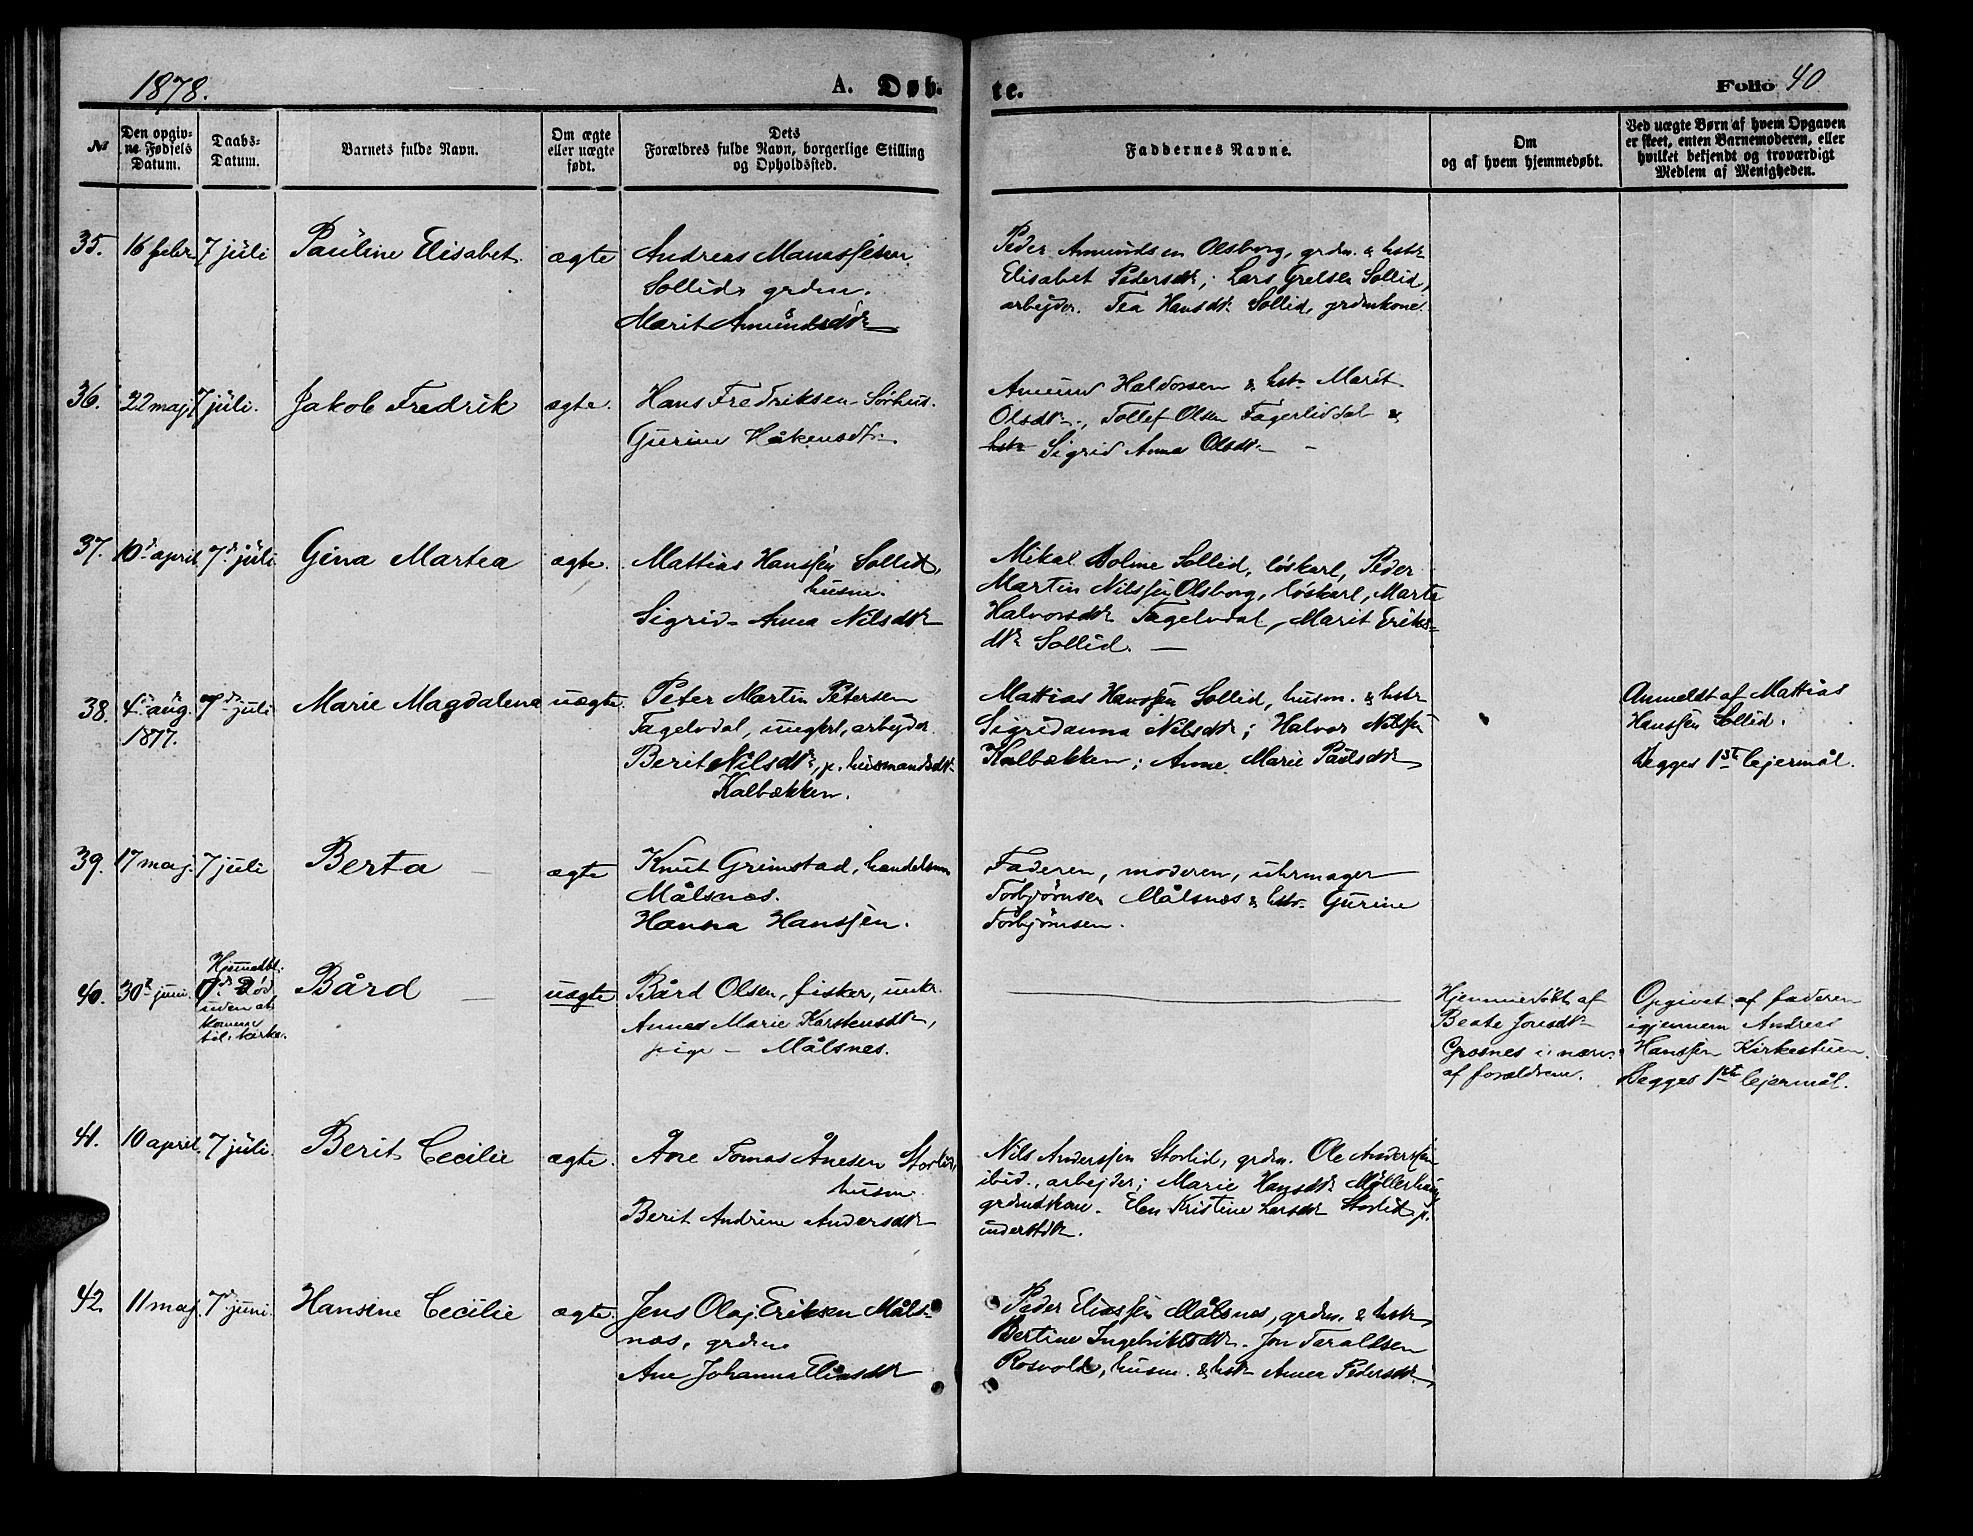 1878.
A. Døb-
te.
Folio 40
№
Den opgiv-
ne Fødsels
Datum.
Daabs-
Datum.
Barnets fulde Navn.
Om ægte
eller uægte
født.
Dets
Forældres fulde Navn, borgerlige Stilling
og Opholdssted.
Faddernes Navne.
Om
og af hvem hjemmedøbt.
Ved uægte Børn af hvem Opgaven
er skeet, enten Barnemoderen, eller
hvilket bekjendt og troværdigt
Medlem af Menigheden.
35. 16 febr 7 juli Pauline Elisabet. ægte
Andreas Manassesen
Sollid, grdm.
Marit Amundsdtr
Peder Amundsen Olsborg, grdm. & hstr
Elisabet Pedersdtr; Lars Grelsen Sollid,
arbejder. Tea Hansdtr Sollid, grdmkone.
36. 22 maj 7 juli. Jakob Fredrik ægte.
Hans Fredriksen Sørhus.
Gurine Håkensdtr
Amund Haldorsen & hstr Marit
Olsdtr., Tollef Olsen Fagerliddal &
hstr Sigrid Anna Olsdtr –
37. 10d april 7d juli. Gina Martea ægte.
Mattias Hanssen Sollid,
husm.
Sigrid Anna Nilsdtr
Mikal Bolme Sollid, løskarl, Peder
Martin Nilssen Olsborg, løskarl, Marte
Halvorsdtr Tagelvdal, Marit Eriks=
dtr Sollid. —
38. 4de aug. 1877. 7de juli Marie Magdalena uægte.
Peter Martin Petersen
Tagelvdal, ungkrl, arbejder
Berit Nilsdtr, p. husmandsdtr
Kalbækken.
Mattias Hanssen Sollid, husm. & hstr
Sigridanna Nilsdtr; Halvor Nilssen
Kalbækken; Anne Marie Paulsdtr
Anmeldt af Mattias
Hanssen Sollid.
Begges 1ste lejermål.
39. 17 maj. 7 juli Berta – ægte
Knut Grimstad, handelsm
Målsnæs.
Hanna Hanssen.
Faderen, moderen, uhrmager
Torbjørnsen Målsnæs & hstr Gurine
Torbjørnsen.
40. 30te juni. Hjemmedbt.
Død
uden at
komme
til kirke.
Bård – uægte
Bård Olsen, fisker, unkr.
Annes Marie Karstensdtr,
pige – Målsnes.
Hjemmedøbt af
Beate Jonsdtr
Grosnes i nærv.
af forældrene.
Opgivet af faderen
igjennem Andreas
Hanssen Kirkestuen.
Begges 1ste lejermål.
41. 10 april. 7 juli. Berit Cecilie ægte.
Åne Tomas Ånesen Storlid,
husm
Berit Andrine Andersdtr
Nils Anderssen Storlid, grdm. Ole Anderssen
ibid., arbejder; Marie Hansdtr Møllerhaug
grdmdskone. Elen Kristine Larsdtr Storlid p.
inderstdtr.
42. 11 maj 7d juni. Hansine Cecilie ægte.
Jens Olaj Eriksen Måls-
næs, grdm
Ane Johanna Eliasdtr
Peder Eliassen Målsnes, grdm. & hstr
Bertine Ingebriktsdtr. Jon Taraldsen
Rosvold, husm. & hstr Anna Pedersdtr.